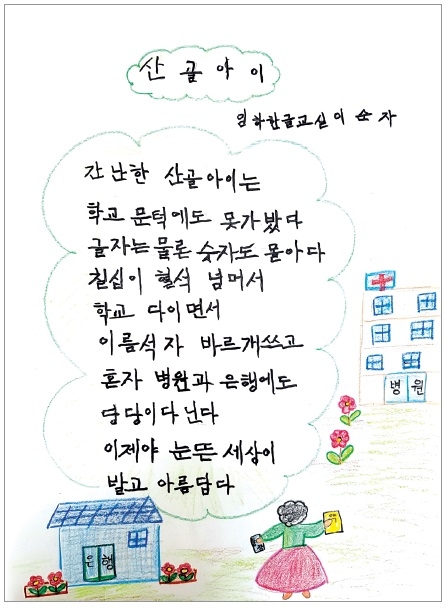 산 골 아 이
한글교실 이 순 자
가난한 산골아이는
학교 문턱에도 못가봤다
글자는물론 숫자도 몰아다
칠십이 훨석 넘머서
학교 다이면서
이름석자 바르개쓰고
혼자 병원과 은행에도
당당이다닌다
이제야 눈뜬세상이
발고 아름답다
병 원
은 행